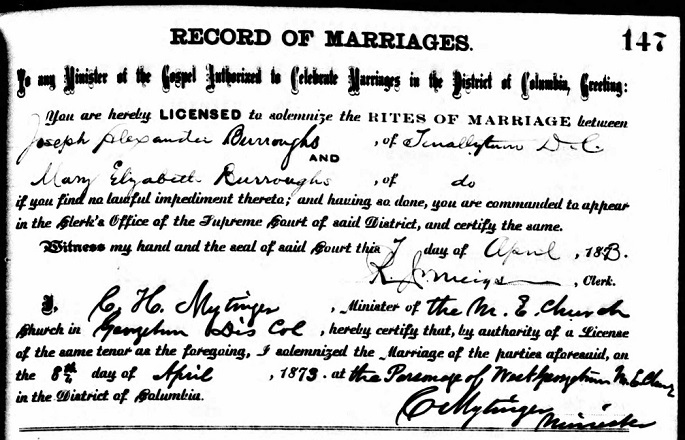 RECORD OF MARRIAGES. 147
To any Minister of the Gospel Authorized to Celebrate Marriages in the District of Columbia, Greeting:
You are hereby LICENSED to solemnize the RITES OF MARRIAGE between
Joseph Alexander Burroughs , of Tenallytown D.C.
AND
Mary Elizabeth Burroughs , of do
if you find no lawful impediment thereto; and having so done, you are commanded to appear
in the Clerk's Office of the Supreme Court of said District, and certify the same.
Witness my hand and the seal of said Court this 7 day of April , 1873.
R. J. Meigs , Clerk.
I, C. H. Mytinger , Minister of the M. E. Church
Church in Georgetown Dis Col , hereby certify that, by authority of a License
of the same tenor as the foregoing, I solemnized the Marriage of the parties aforesaid, on
the 8th day of April , 1873. at the Parsonage of West Georgetown M. E. Church
in the District of Columbia.
C H Mytinger Minister